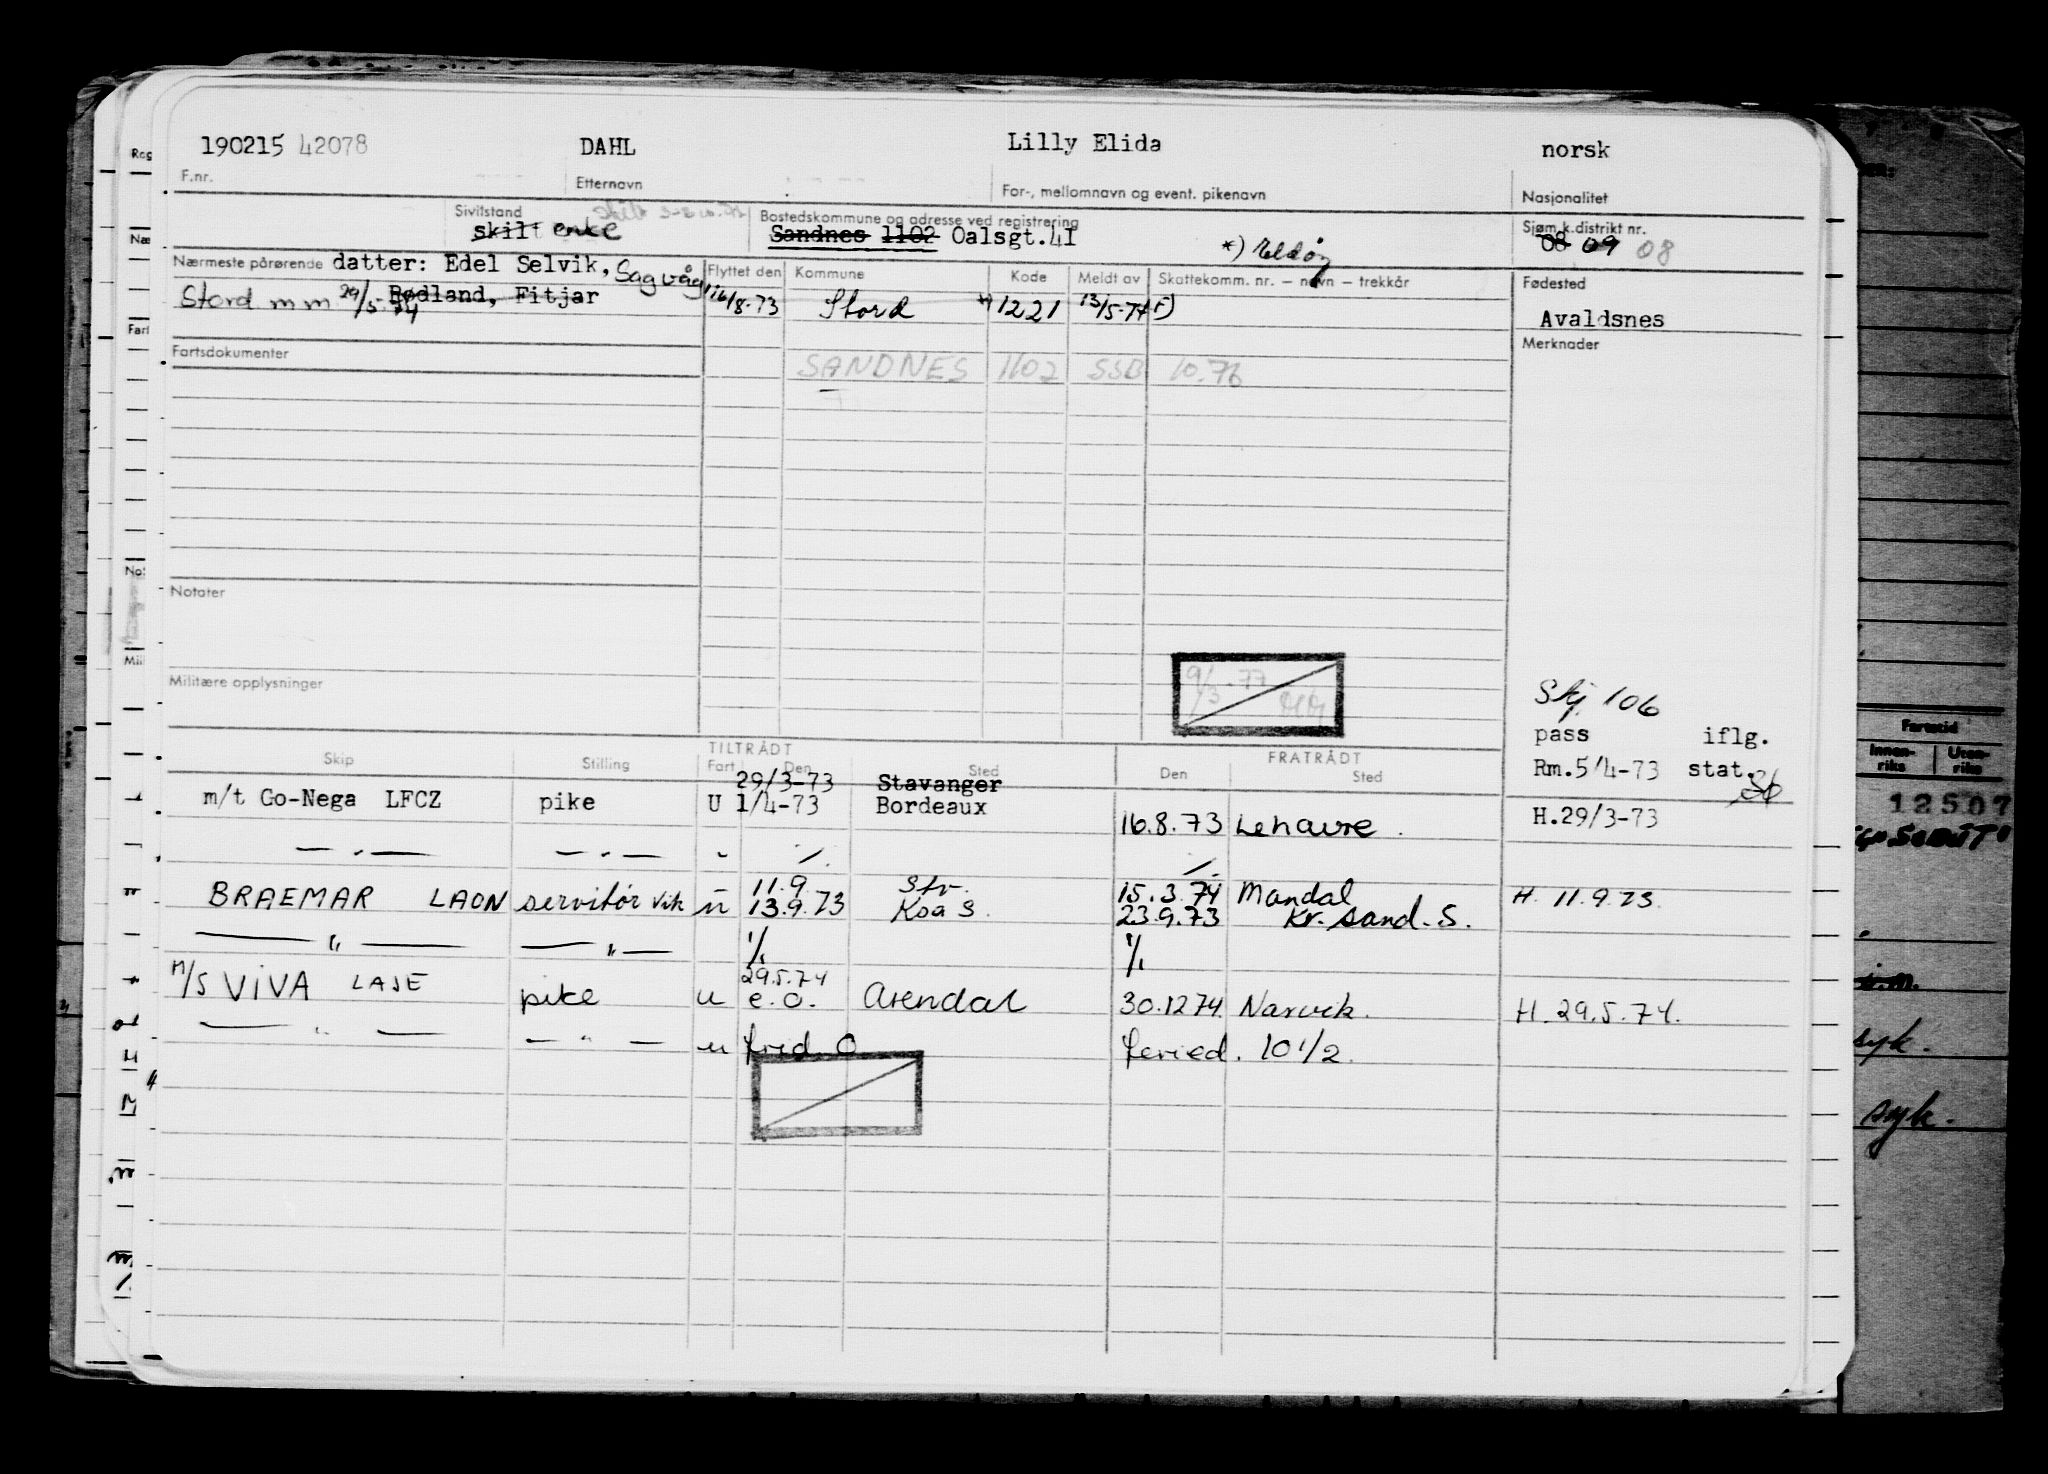 190215 42078 DAHL Lilly Elida norsk
F.nr. Etternavn For-, mellomnavn og event. pikenavn Nasjonalitet
Sivilstand Bostedskommune og adresse ved registrering Sjøm.k.distrikt nr.
skilt enke Sandnes 1102 Oalsgt.41 08 09 08
Nærmeste pårørende datter: Edel Selvik, Sagvåg Flyttet den Kommune Kode Meldt av Skattekomm. nr. – navn – trekkår Fødested
Stord m m 29/5-74 Rødland, Fitjar 16/8-73 Stord *) 1221 13/5-74 Avaldsnes
Fartsdokumenter SANDNES 1102 SSB 10.76 Merknader
Notater
9/3-77
Militære opplysninger Skj. 106
pass iflg.
Rm.5/4-73 stat.
TILTRÅDT FRATRÅDT
Skip Stilling Fart Den Sted Den Sted
29/3-73 Stavanger
m/t Go-Nega LFCZ pike U 1/4-73 Bordeaux 16.8.73 Lehavre H.29/3-73
— . — — . — " /. /.
11.9. Stv. 15.3.74 Mandal
BRAEMAR LAON servitør vik u 13.9.73 Krsa S. 23.9.73 Kr. sand. S. H. 11.9.73.
— " — — " — 1/1 1/1
29.5.74
M/S VIVA LAJE pike u e.o. Arendal 30.12 74 Narvik. H. 29.5.74.
— " — — " — u frid. 0 feried. 10 1/2.
Farestid
Innen-riks Uten-riks
12507
syk.
syk.